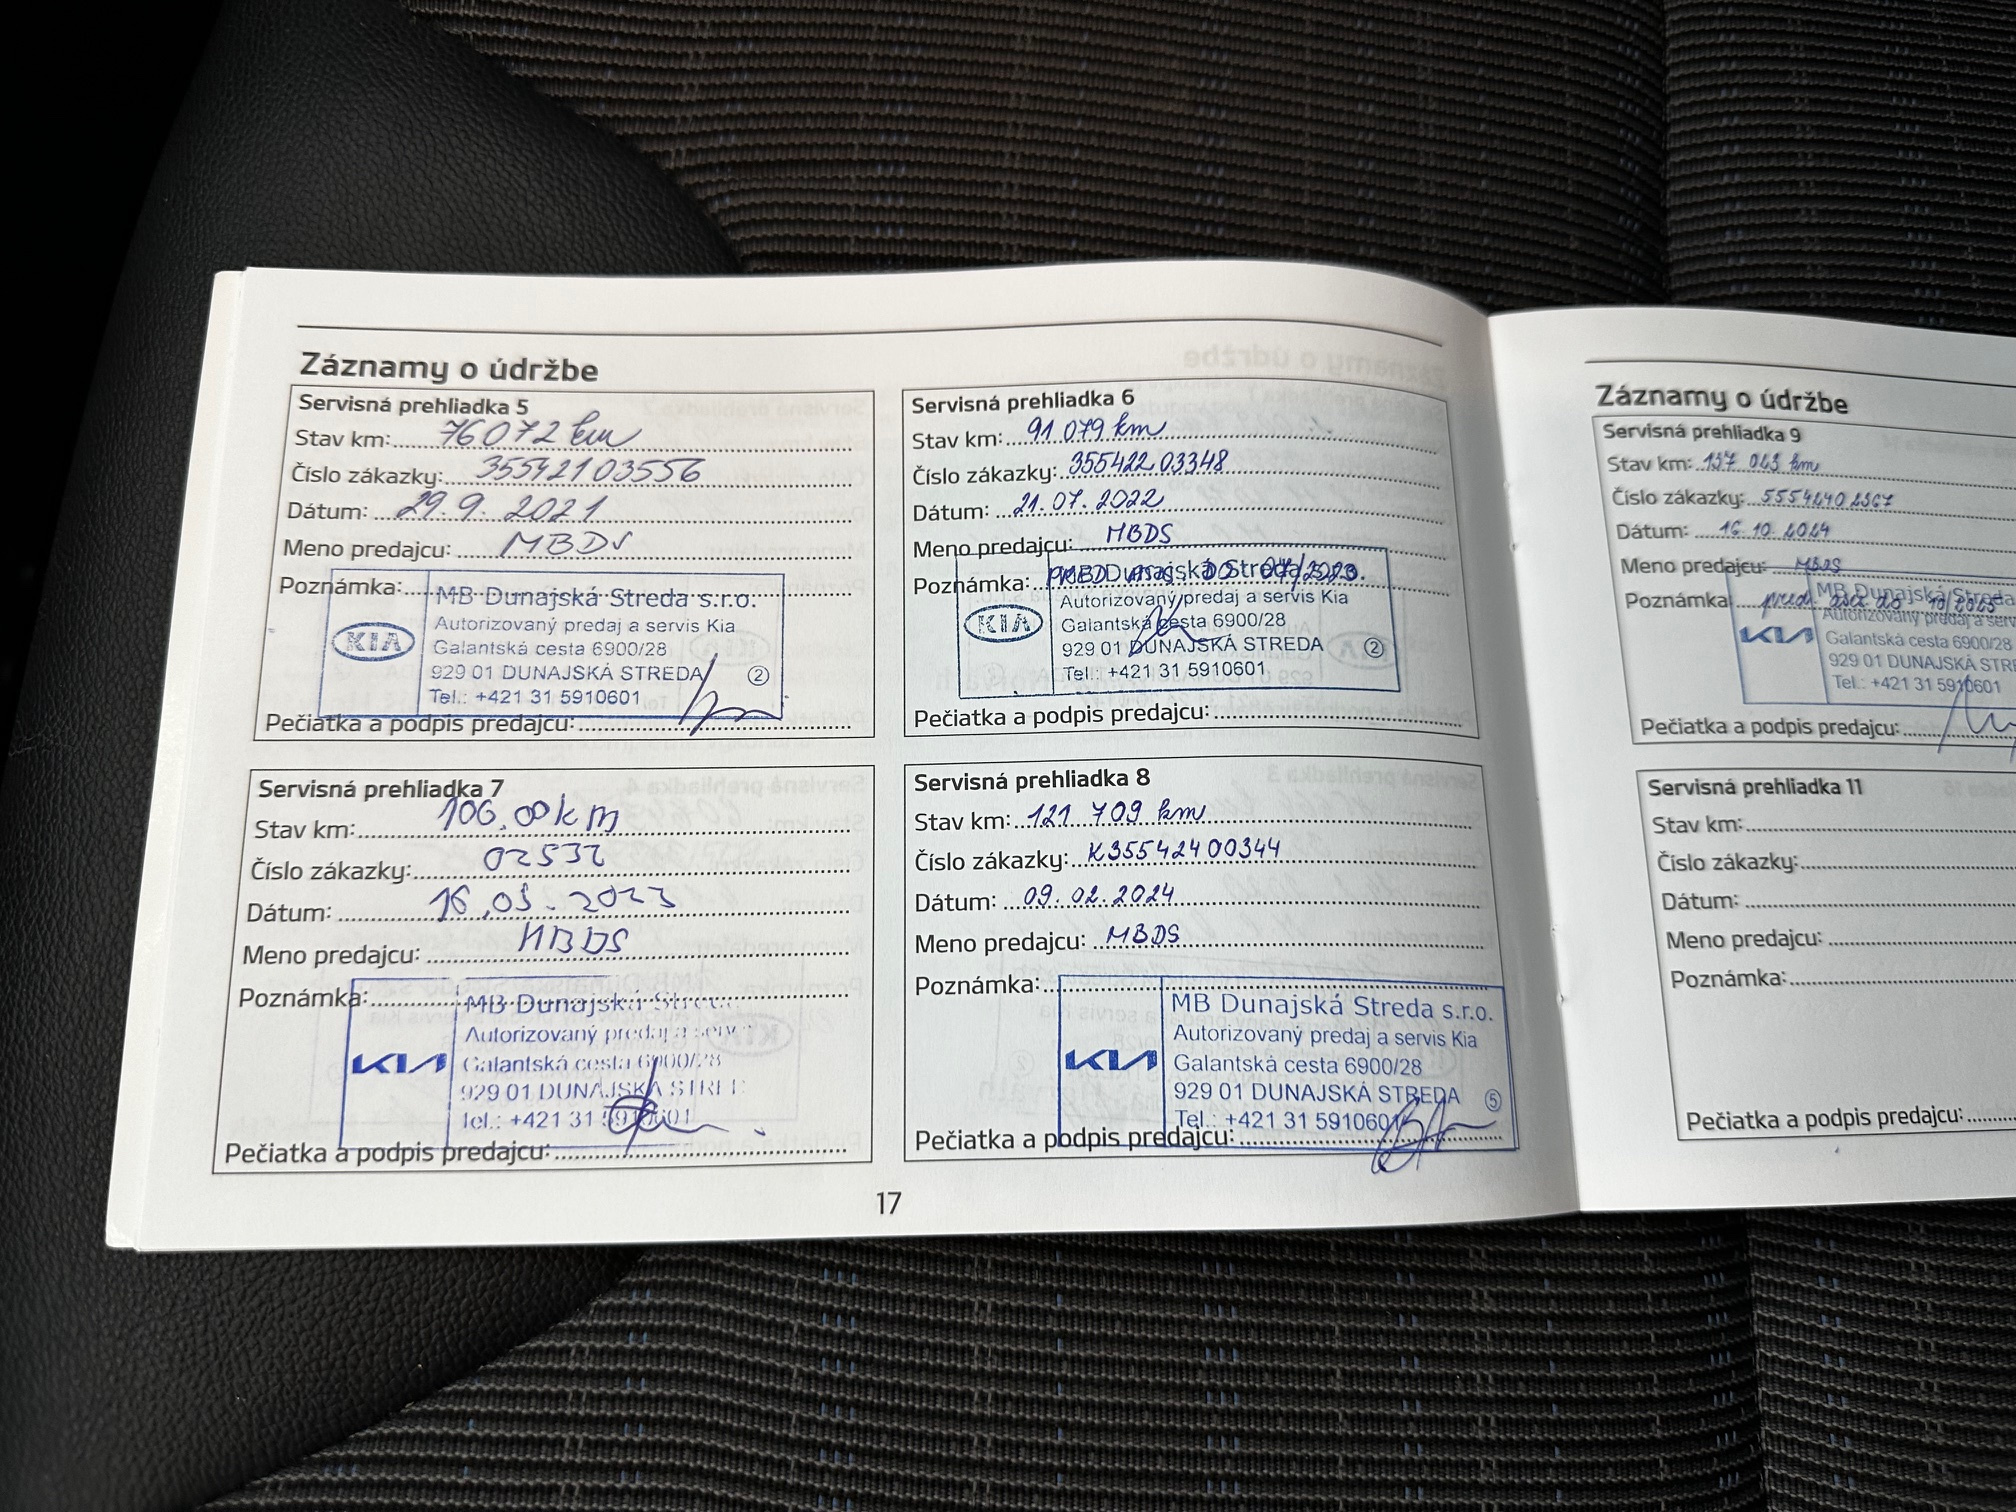 Záznamy o údržbe
Servisná prehliadka 5
Stav km: 76072 km
Číslo zákazky: 35542103556
Dátum: 29.9.2021
Meno predajcu: MBDS
Poznámka:
MB Dunajská Streda s.r.o.
Autorizovaný predaj a servis Kia
KIA
Galantská cesta 6900/28
929 01 DUNAJSKÁ STREDA
2
Tel.: +421 31 5910601
Pečiatka a podpis predajcu:
Servisná prehliadka 6
Stav km: 91 079 km
Číslo zákazky: 35542203348
Dátum: 21.07.2022
Meno predajcu: MBDS
Poznámka: PRED. ASIS. DO 07/2023.
MB Dunajská Streda s.r.o.
Autorizovaný predaj a servis Kia
KIA
Galantská cesta 6900/28
929 01 DUNAJSKÁ STREDA
2
Tel.: +421 31 5910601
Pečiatka a podpis predajcu:
Servisná prehliadka 7
Stav km: 106.00 km
Číslo zákazky: 02532
Dátum: 16.05.2023
Meno predajcu: MBDS
Poznámka:
MB Dunajská Streda
Autorizovaný predaj a servis
KIA
Galantská cesta 6900/28
929 01 DUNAJSKÁ STREDA
Tel.: +421 31 5910601
Pečiatka a podpis predajcu:
Servisná prehliadka 8
Stav km: 121 709 km
Číslo zákazky: K35542400344
Dátum: 09.02.2024
Meno predajcu: MBDS
Poznámka:
MB Dunajská Streda s.r.o.
Autorizovaný predaj a servis Kia
KIA
Galantská cesta 6900/28
929 01 DUNAJSKÁ STREDA
5
Tel.: +421 31 5910601
Pečiatka a podpis predajcu:
17
Záznamy o údržbe
Servisná prehliadka 9
Stav km: 137 043 km
Číslo zákazky:
Dátum: 16.10.2024
Meno predajcu: MBDS
Poznámka: pred. asis. do 10/2025
MB Dunajská Streda
Autorizovaný predaj a serv
KIA
Galantská cesta 6900/28
929 01 DUNAJSKÁ STRE
Tel.: +421 31 5910601
Pečiatka a podpis predajcu:
Servisná prehliadka 11
Stav km:
Číslo zákazky:
Dátum:
Meno predajcu:
Poznámka:
Pečiatka a podpis predajcu: